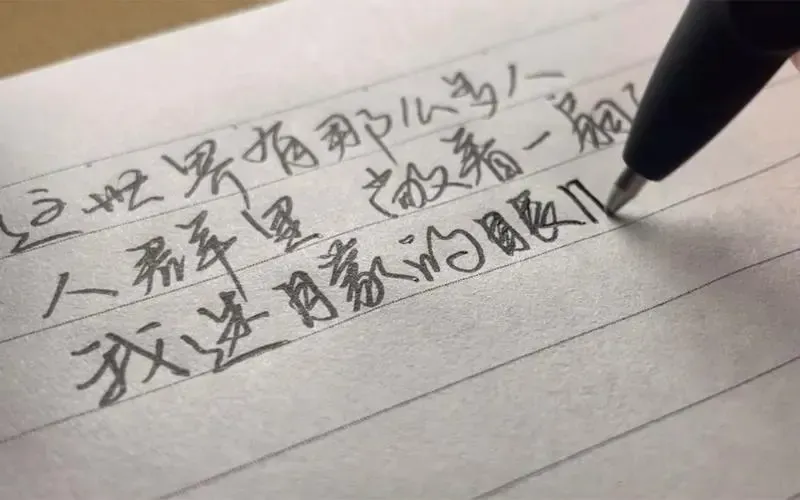 这世界有那么多人
人群里 敞着一扇
我迷朦的眼